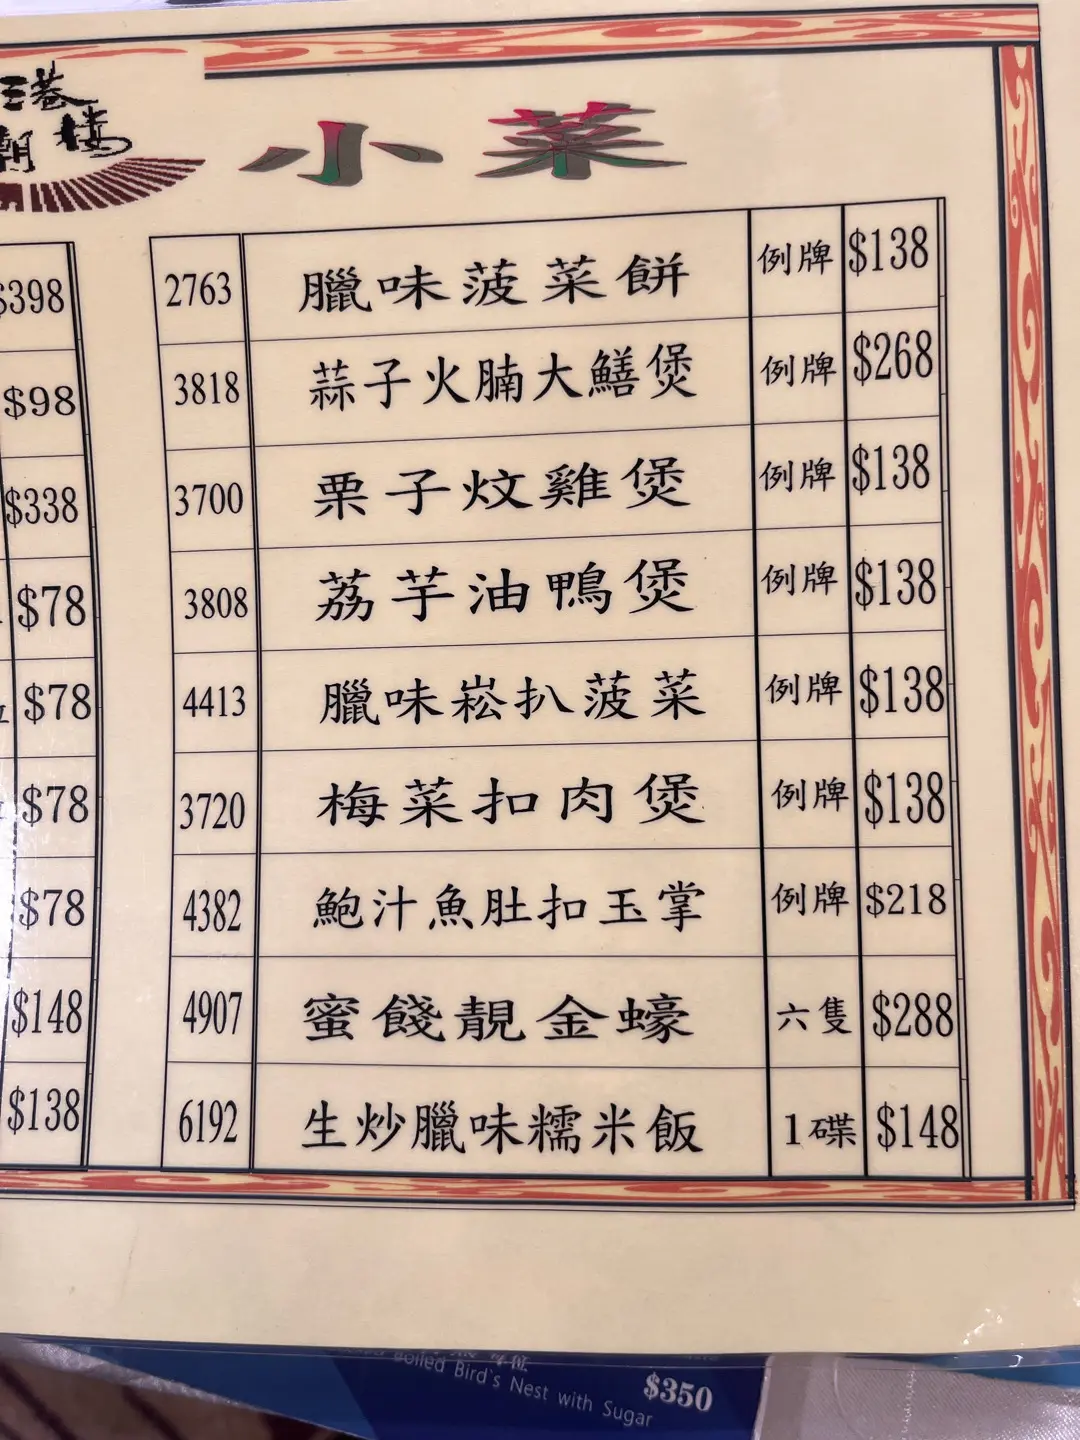 小菜
$398
$98
$338
$78
$78
$78
$78
$148
$138
2763 臘味菠菜餅 例牌 $138
3818 蒜子火腩大鱔煲 例牌 $268
3700 栗子炆雞煲 例牌 $138
3808 荔芋油鴨煲 例牌 $138
4413 臘味崧扒菠菜 例牌 $138
3720 梅菜扣肉煲 例牌 $138
4382 鮑汁魚肚扣玉掌 例牌 $218
4907 蜜餞靚金蠔 六隻 $288
6192 生炒臘味糯米飯 1碟 $148
Boiled Bird`s Nest with Sugar $350